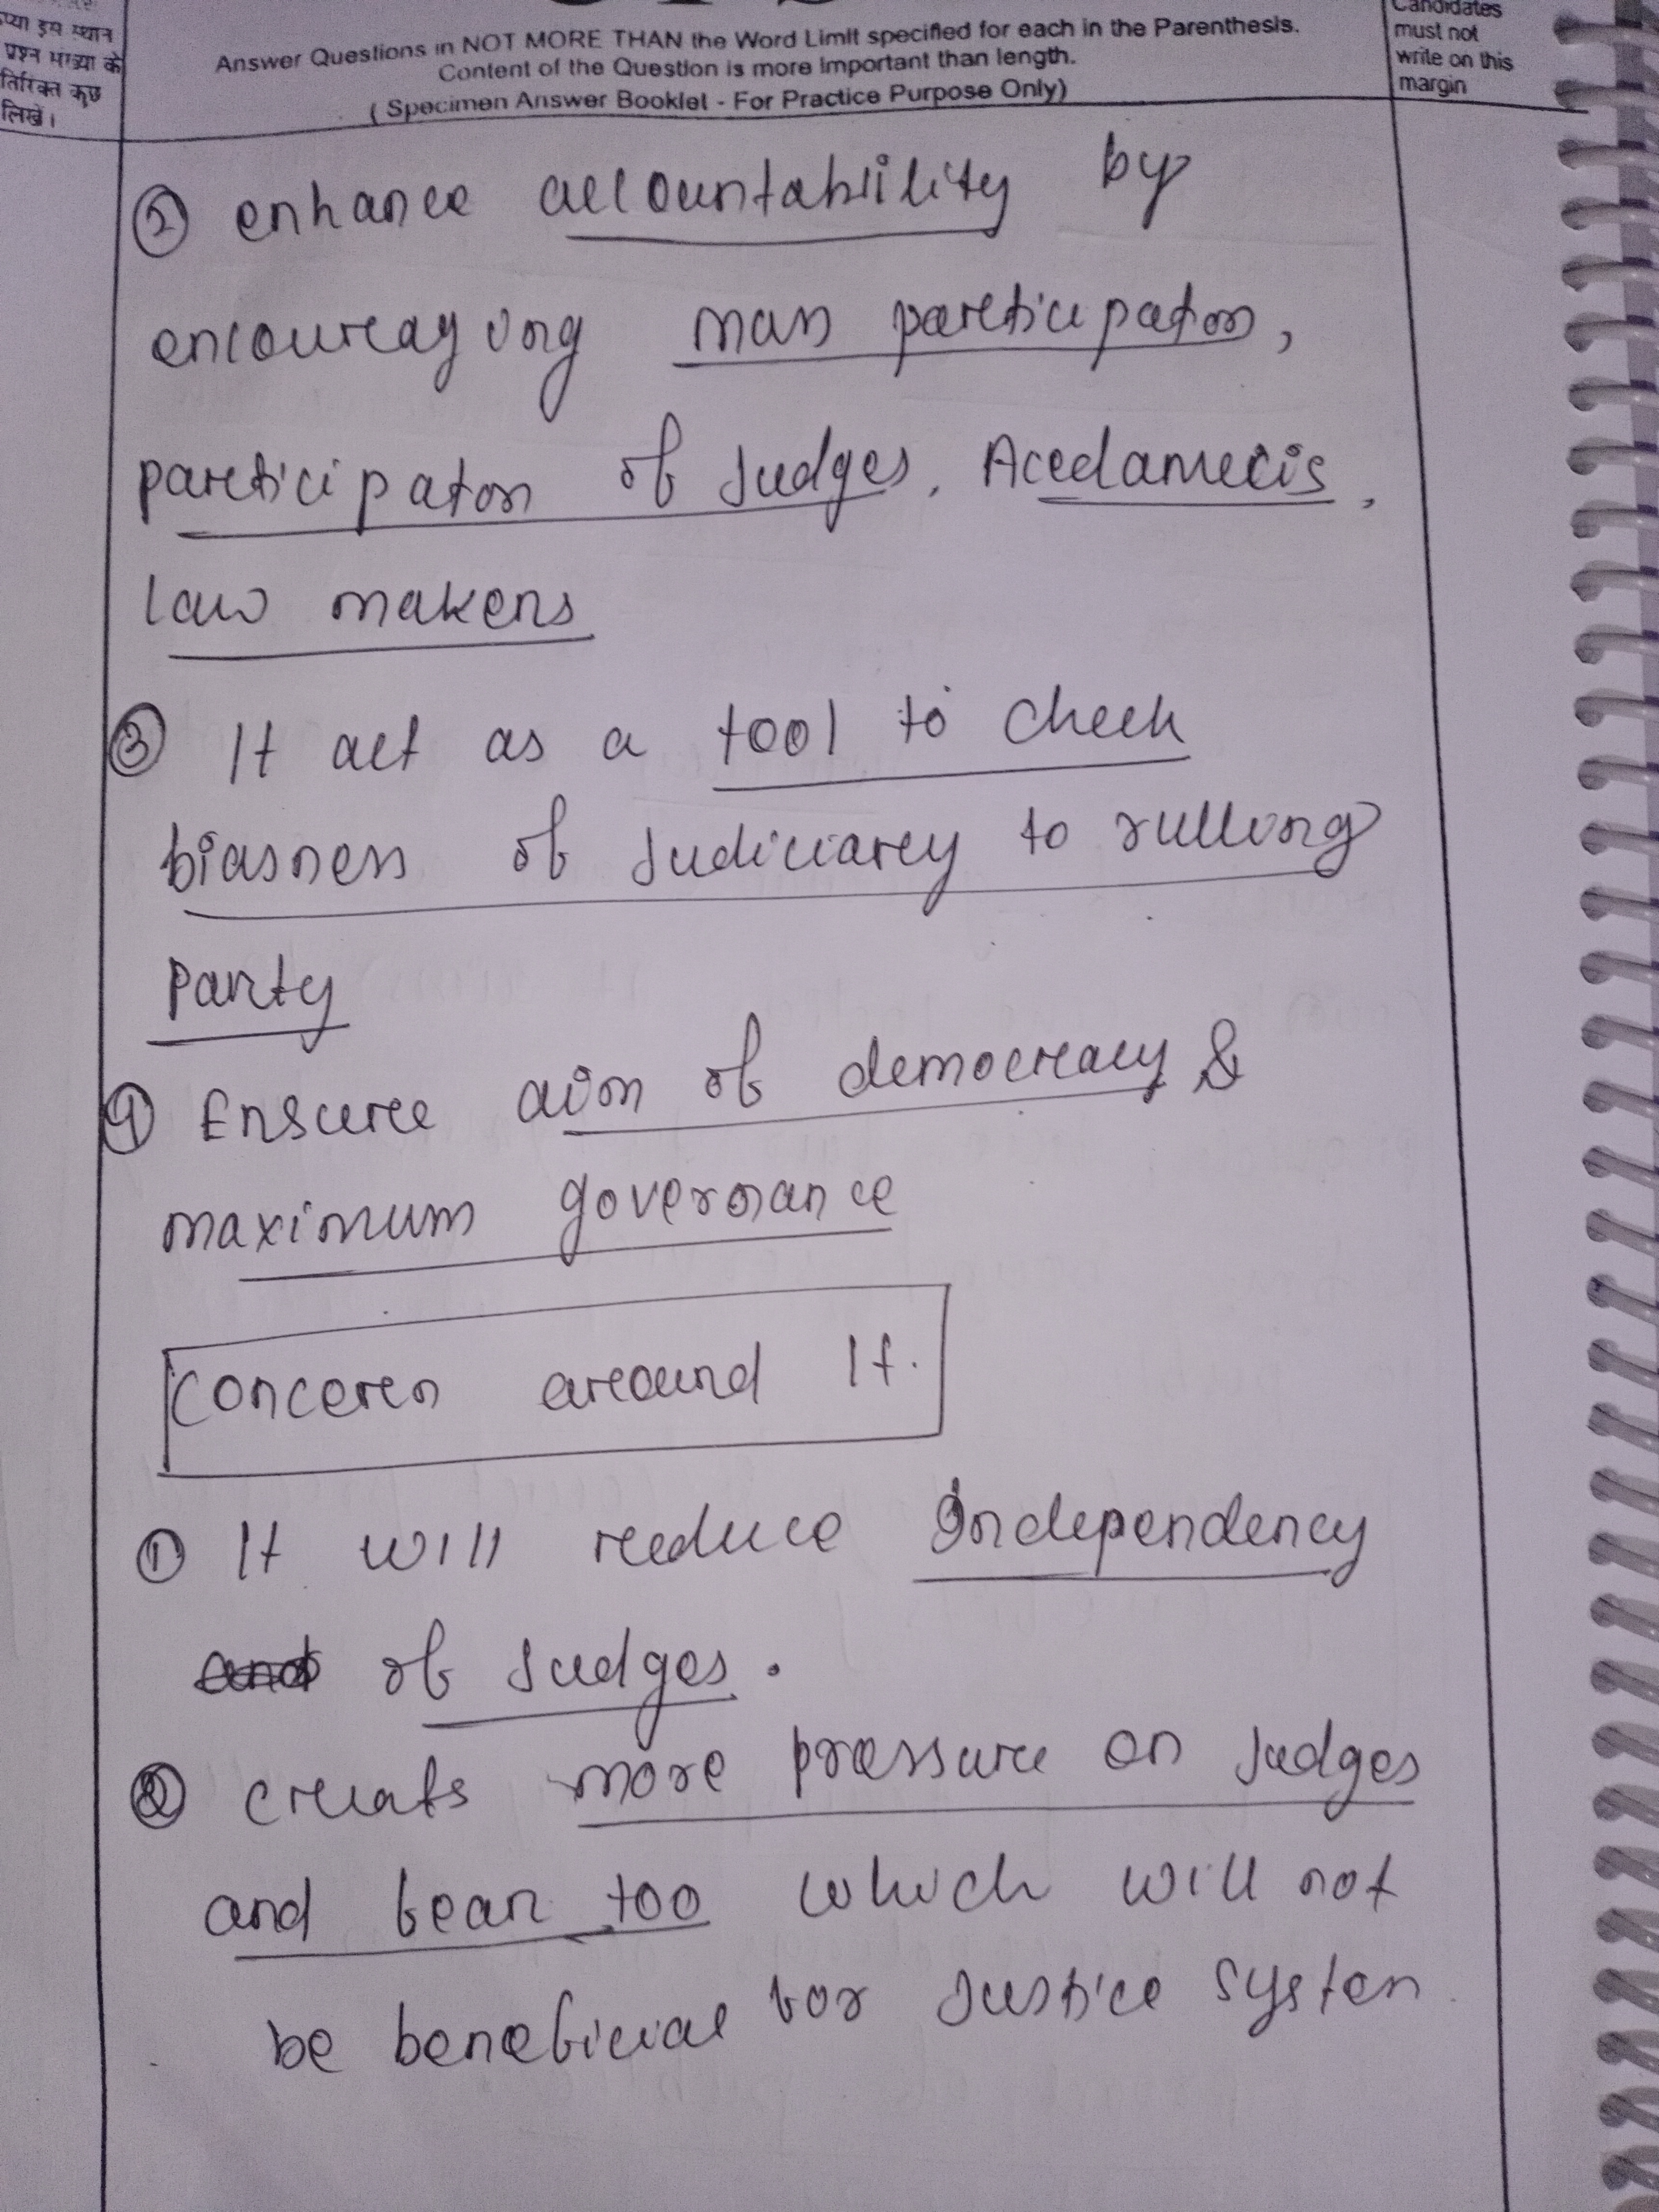 इस स्थान
प्रश्न संख्या के
कुछ
लिखें।
Answer Questions in NOT MORE THAN the Word Limit specified for each in the Parenthesis.
Content of the Question is more important than length.
( Specimen Answer Booklet - For Practice Purpose Only)
Candidates
must not
write on this
margin
② enhance accountability by
encouraging mass participaton,
participaton of Judges, Acedamecis,
law makers
③ It act as a tool to check
biasness of Judiciary to rulling
Party
④ Ensure aim of democracy &
maximum governance
Concern around It.
① It will reduce Independency
and of Judges.
② creats more pressure on Judges
and fear too which will not
be beneficial for Justice System